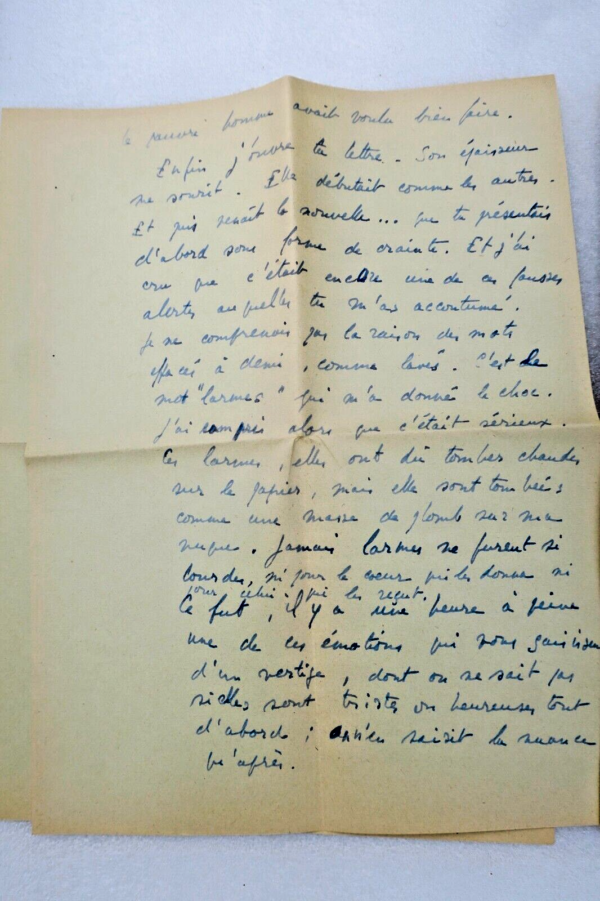 le pauvre homme avait voulu bien faire.
Enfin j'ouvre ta lettre. Son épaisseur
me sourit. Elle débutait comme les autres.
Et puis venait la nouvelle... que tu présentais
d'abord sous forme de crainte. Et j'ai
cru que c'était encore une de ces fausses
alertes auxquelles tu m'as accoutumé.
Je ne comprenais pas la raison des mots
effacés à demi, comme lavés. C'est le
mot "larmes" qui m'a donné le choc.
J'ai compris alors que c'était sérieux.
Ces larmes, elles ont dû tomber chaudes
sur le papier, mais elle sont tombées
comme une masse de plomb sur ma
nuque. Jamais larmes ne furent si
lourdes, ni pour le coeur qui les donne ni
pour celui qui les reçut.
Ce fut, il y a une heure à peine
une de ces émotions qui vous saisissen
d'un vertige, dont on ne sait pas
si elles sont tristes ou heureuses tout
d'abord ; on n'en saisit la nuance
qu'après.